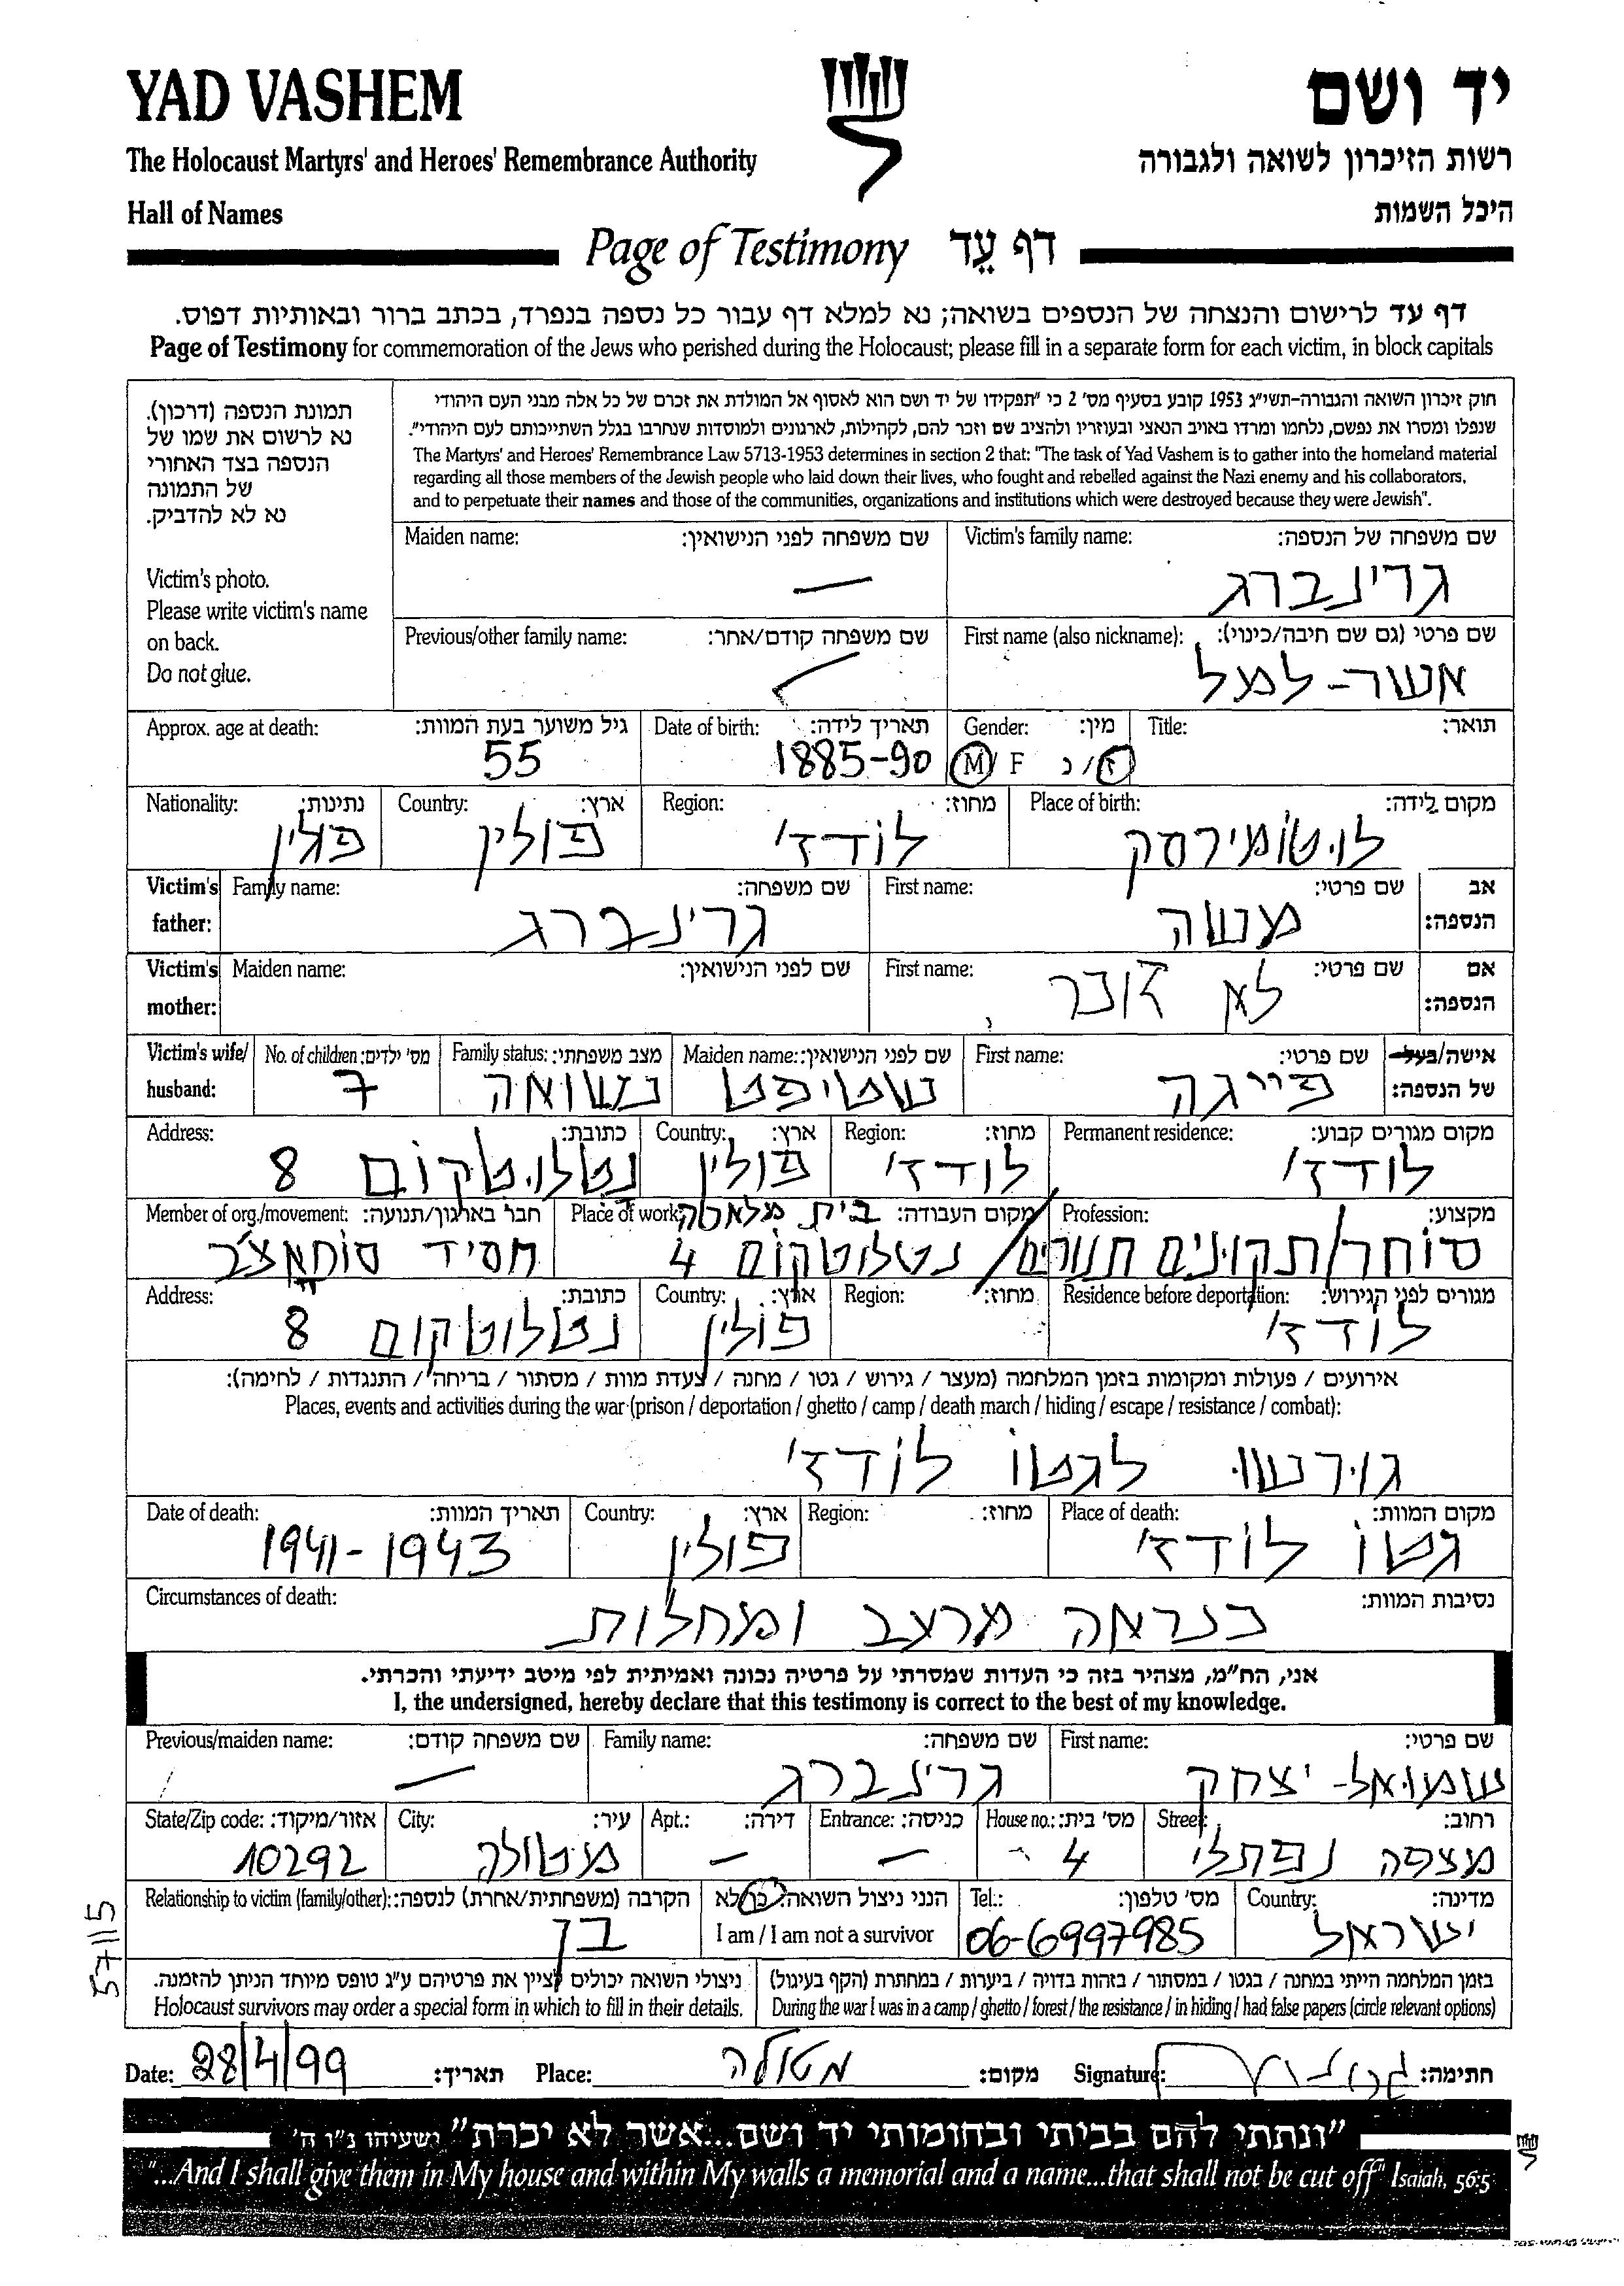 YAD VASHEM
יד ושם
The Holocaust Martyrs' and Heroes' Remembrance Authority
רשות הזיכרון לשואה ולגבורה
Hall of Names
היכל השמות
Page of Testimony דף עֵד
דף עד לרישום והנצחה של הנספים בשואה; נא למלא דף עבור כל נספה בנפרד, בכתב ברור ובאותיות דפוס.
Page of Testimony for commemoration of the Jews who perished during the Holocaust; please fill in a separate form for each victim, in block capitals
תמונת הנספה (דרכון).
נא לרשום את שמו של
הנספה בצד האחורי
של התמונה
נא לא להדביק.
Victim's photo.
Please write victim's name
on back.
Do not glue.
חוק זיכרון השואה והגבורה-תשי"ג 1953 קובע בסעיף מס' 2 כי "תפקידו של יד ושם הוא לאסוף אל המולדת את זכרם של כל אלה מבני העם היהודי
שנפלו ומסרו את נפשם, נלחמו ומרדו באויב הנאצי ובעוזריו ולהציב שם וזכר להם, לקהילות, לארגונים ולמוסדות שנחרבו בגלל השתייכותם לעם היהודי".
The Martyrs' and Heroes' Remembrance Law 5713-1953 determines in section 2 that: "The task of Yad Vashem is to gather into the homeland material
regarding all those members of the Jewish people who laid down their lives, who fought and rebelled against the Nazi enemy and his collaborators,
and to perpetuate their names and those of the communities, organizations and institutions which were destroyed because they were Jewish".
שם משפחה של הנספה: Victim's family name: שם משפחה לפני הנישואין: Maiden name:
גרינברג —
שם פרטי (גם שם חיבה/כינוי): First name (also nickname): שם משפחה קודם/אחר: Previous/other family name:
אשר-למל
תואר: Title: מין: Gender: תאריך לידה: Date of birth: גיל משוער בעת המוות: Approx. age at death:
ז/נ M/ F 1885-90 55
מקום לידה: Place of birth: מחוז: Region: ארץ: Country: נתינות: Nationality:
לוטומירסק לודז' פולין פולין
אב שם פרטי: First name: שם משפחה: Family name: Victim's
הנספה: משה גרינברג father:
אם שם פרטי: First name: שם לפני הנישואין: Maiden name: Victim's
הנספה: לא זוכר mother:
אישה/בעל שם פרטי: First name: שם לפני הנישואין: Maiden name: מצב משפחתי: Family status: מס' ילדים: No. of children: Victim's wife/
של הנספה: פייגה נשואה 7 husband:
מקום מגורים קבוע: Permanent residence: מחוז: Region: ארץ: Country: כתובת: Address:
לודז' לודז' פולין 8
מקצוע: Profession: מקום העבודה: Place of work: חבר בארגון/תנועה: Member of org./movement:
בית מלאכה
סוחר/תקונים תנורים/ 4 חסיד
מגורים לפני הגירוש: Residence before deportation: מחוז: Region: ארץ: Country: כתובת: Address:
לודז' פולין 8
אירועים / פעולות ומקומות בזמן המלחמה (מעצר / גירוש / גטו / מחנה / צעדת מוות / מסתור / בריחה / התנגדות / לחימה):
Places, events and activities during the war (prison / deportation / ghetto / camp / death march / hiding / escape / resistance / combat):
גורשו לגטו לודז'
מקום המוות: Place of death: מחוז: Region: ארץ: Country: תאריך המוות: Date of death:
גטו לודז' פולין 1941-1943
נסיבות המוות: Circumstances of death:
כנראה מרעב ומחלות
אני, הח"מ, מצהיר בזה כי העדות שמסרתי על פרטיה נכונה ואמיתית לפי מיטב ידיעתי והכרתי.
I, the undersigned, hereby declare that this testimony is correct to the best of my knowledge.
שם פרטי: First name: שם משפחה: Family name: שם משפחה קודם: Previous/maiden name:
שמואל-יצחק גרינברג —
רחוב: Street: מס' בית: House no.: כניסה: Entrance: דירה: Apt.: עיר: City: אזור/מיקוד: State/Zip code:
מצפה נפתלי 4 — — מטולה 10292
מדינה: Country: מס' טלפון: Tel.: הנני ניצול השואה: כן/לא הקרבה (משפחתית/אחרת) לנספה: Relationship to victim (family/other):
ישראל 06-6997985 I am / I am not a survivor בן
57115
בזמן המלחמה הייתי במחנה / בגטו / במסתור / בזהות בדויה / ביערות / במחתרת (הקף בעיגול) ניצולי השואה יכולים לציין את פרטיהם ע"ג טופס מיוחד הניתן להזמנה.
During the war I was in a camp / ghetto / forest / the resistance / in hiding / had false papers (circle relevant options) Holocaust survivors may order a special form in which to fill in their details.
Date: 28/4/99 תאריך: Place: מטולה מקום: Signature: חתימה:
"ונתתי להם בביתי ובחומותי יד ושם...אשר לא יכרת" ישעיהו נ"ו ה'
"...And I shall give them in My house and within My walls a memorial and a name...that shall not be cut off" Isaiah, 56:5